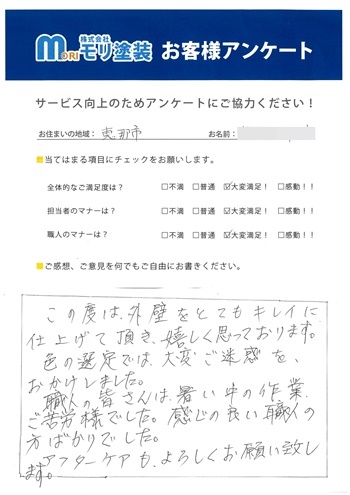 株式会社
MORI モリ塗装 お客様アンケート
サービス向上のためアンケートにご協力ください！
お住まいの地域： 恵那市 お名前：
■当てはまる項目にチェックをお願いします。
全体的なご満足度は？ □不満 □普通 ☑大変満足！ □感動！！
担当者のマナーは？ □不満 □普通 ☑大変満足！ □感動！！
職人のマナーは？ □不満 □普通 ☑大変満足！ □感動！！
■ご感想、ご意見を何でもご自由にお書きください。
この度は、外壁をとてもキレイに
仕上げて頂き、嬉しく思っております。
色の選定では、大変ご迷惑を、
おかけしました。
職人の皆さんは、暑い中の作業
ご苦労様でした。感じの良い職人の
方ばかりでした。
アフターケアも、よろしくお願い致し
ます。